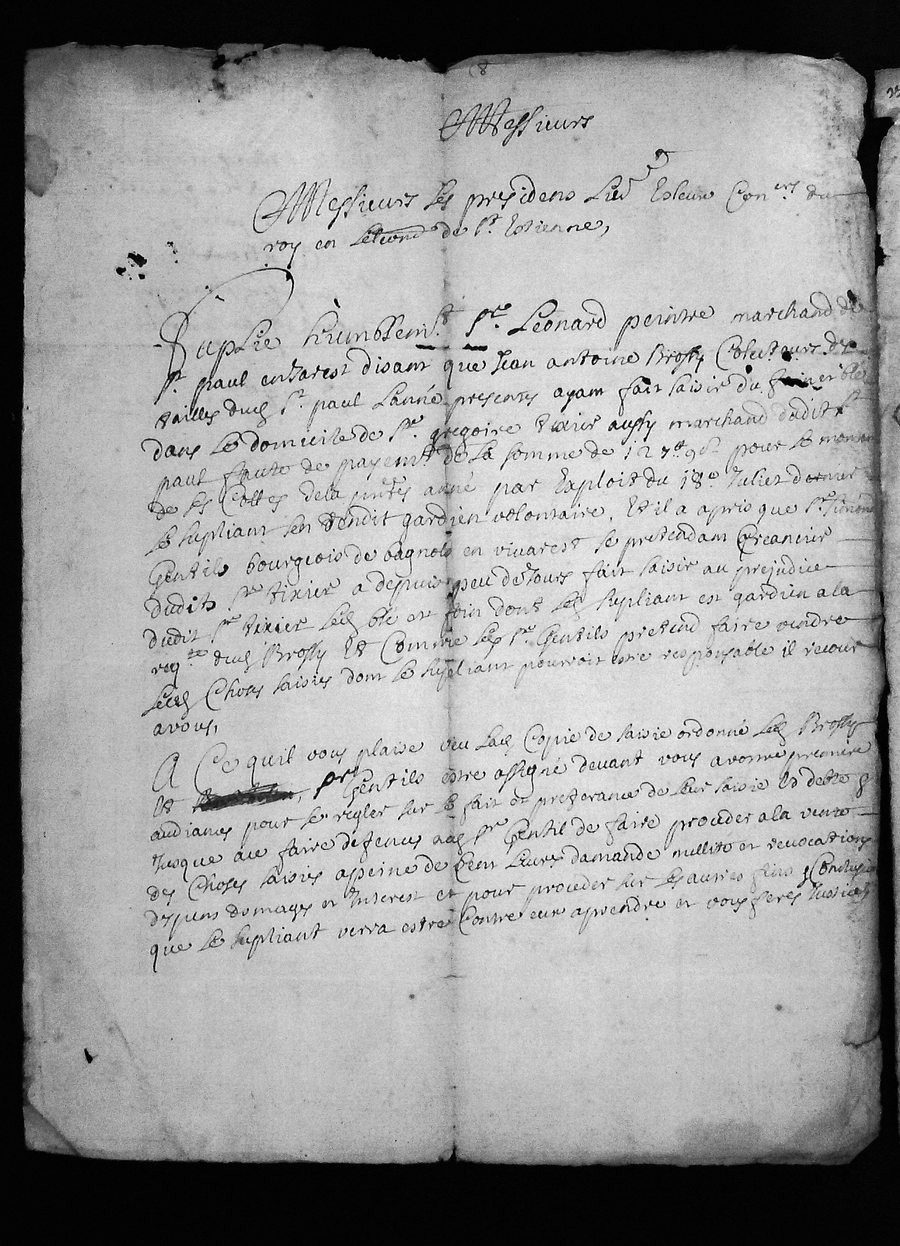 Messieurs
Messieurs les presidens Lieut Esleus Coners du
roy en Lelection de St Estienne,
Suplie humblemt Sr Leonard peintre marchand de
St paul en Jarest disant que Jean antoine Brossy Colecteurs des
tailles dud St paul Lanné presente ayant fait saisir du foin et blé
dans le domicile de Sr gregoire tixier aussy marchand dudit St
paul faute de payemt de la somme de 127tt 9s pour le montant
de ses Cottes de la pnte anné par Exploit du 18e Juliet dernier
le supliant sen rendit gardien volontaire, Et il a apris que Sr Simond
Gentils bourgeois de bagnols en vivarest se pretendant Creancier
dudit Sr tixier a despuis peu de Jours fait saisir au prejudice
dudit Sr tixier led blé et foin dont led supliant est gardien a la
reqte dud Brossy Et Comme led Sr Gentils pretend faire vendre
lesd Choses saisies dont le supliant pourroit estre responsable il recourt
a vous,
A Ce quil vous plaise veu lad Copie de saisie ordonné led Brossy
Et Sr Gentils estre assigné devant vous a vostre premiere
audiance pour se regler sur le fait et preferance de leur saisie Et
Jusque a ce faire defences aud Sr Gentil de faire proceder a la vente
des Choses saisies a peine de leur demande nullité et revocation
despens domages et Interest et pour proceder sur les autres fins Conclusions
que le supliant verra estre Contre eux a prendre et vous feres Justice